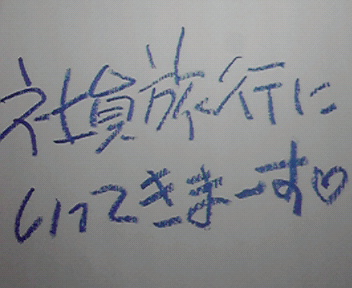 社員旅行に
いってきまーす♡